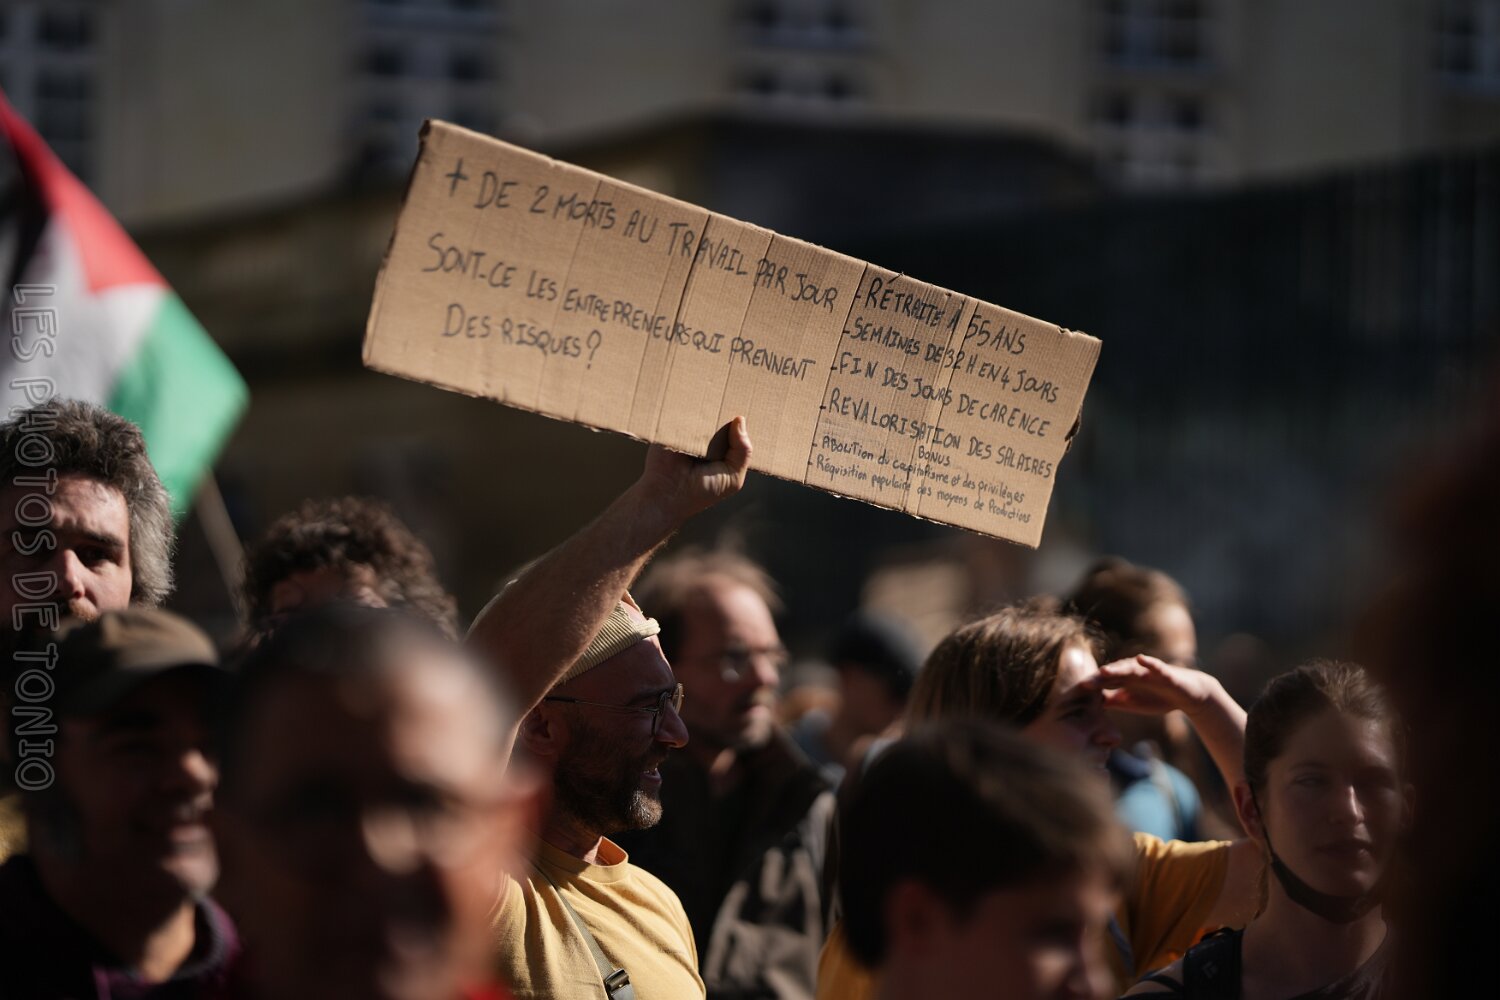 + DE 2 MORTS AU TRAVAIL PAR JOUR
SONT-CE LES ENTREPRENEURS QUI PRENNENT
DES RISQUES?
- RETRAITE A 55 ANS
- SEMAINES DE 32 H EN 4 JOURS
- FIN DES JOURS DE CARENCE
- REVALORISATION DES SALAIRES
BONUS
- ABOLITION du capitalisme et des privilèges
- Réquisition populaire des moyens de Productions
LES PHOTOS DE TONIO